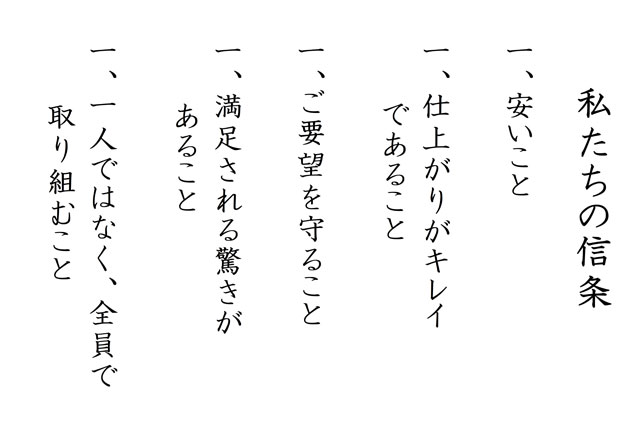 私たちの信条
一、安いこと
一、仕上がりがキレイ
であること
一、ご要望を守ること
一、満足される驚きが
あること
一、一人ではなく、全員で
取り組むこと